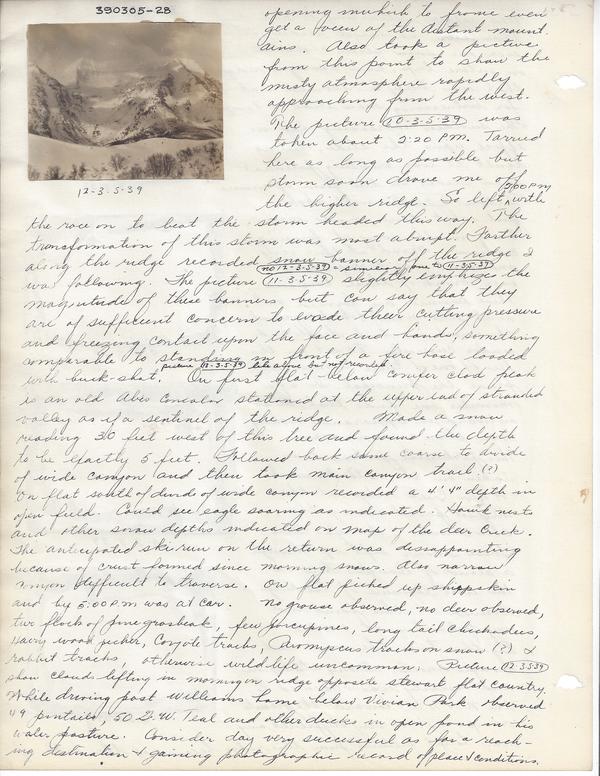 390305-28
12-3-5-39
opening in which to frame even
get a view of the distant mount
ains. Also took a picture
from this point to show the
misty atmosphere rapidly
approaching from the west.
The picture 10-3-5-39 was
taken about 2:20 P.M. Tarried
here as long as possible but
storm soon drove me off
the higher ridge. So left 2:00 P.M. with
the race on to beat the storm headed this way. The
transformation of this storm was most abrupt. Farther
along the ridge recorded snow banner off the ridge I
no 12-3-5-39 one to 11-3-5-39
was following. The picture 11-3-5-39 slightly emphasize the
magnitude of these banners but can say that they
are of sufficient concern to evade their cutting pressure
and freezing contact upon the face and hands, something
comparable to standing in front of a fire hose loaded
picture 12-3-5-39 like above but not recorded
with buck-shot. On first flat below conifer clad peak
is an old Abies Concolor stationed at the upper end of stranded
valley as if a sentinel of the ridge. Made a snow
reading 30 feet west of this tree and found the depth
to be exactly 5 feet. Followed back same coarse to divide
of wide canyon and then took main canyon trail (?)
On flat south of divide of wide canyon recorded a 4' 4" depth in
open field. Could see eagle soaring as indicated. Hawk nests
and other snow depths indicated on map of the deer Creek.
The anticipated ski run on the return was dissappointing
because of crust formed since morning snows. Also narrow
canyon difficult to traverse. On flat picked up skippskin
and by 5:00 P.M was at car. No grouse observed, no deer observed,
two flock of pine grosbeak, few porcupines, long tail chickadees,
Hairy wood pecker, Coyote tracks, Peromyscus tracks on snow (?) &
rabbit tracks, otherwise wild life uncommon. Picture 12-3-5-39
show clouds lifting in morning on ridge opposite stewart flat country.
While driving past Williams home below Vivian Park observed
49 pintails, 50 G. W. Teal and other ducks in open pond in his
water pasture. Consider day very successful as far a reach-
ing destination & gaining photographic record of place & conditions.